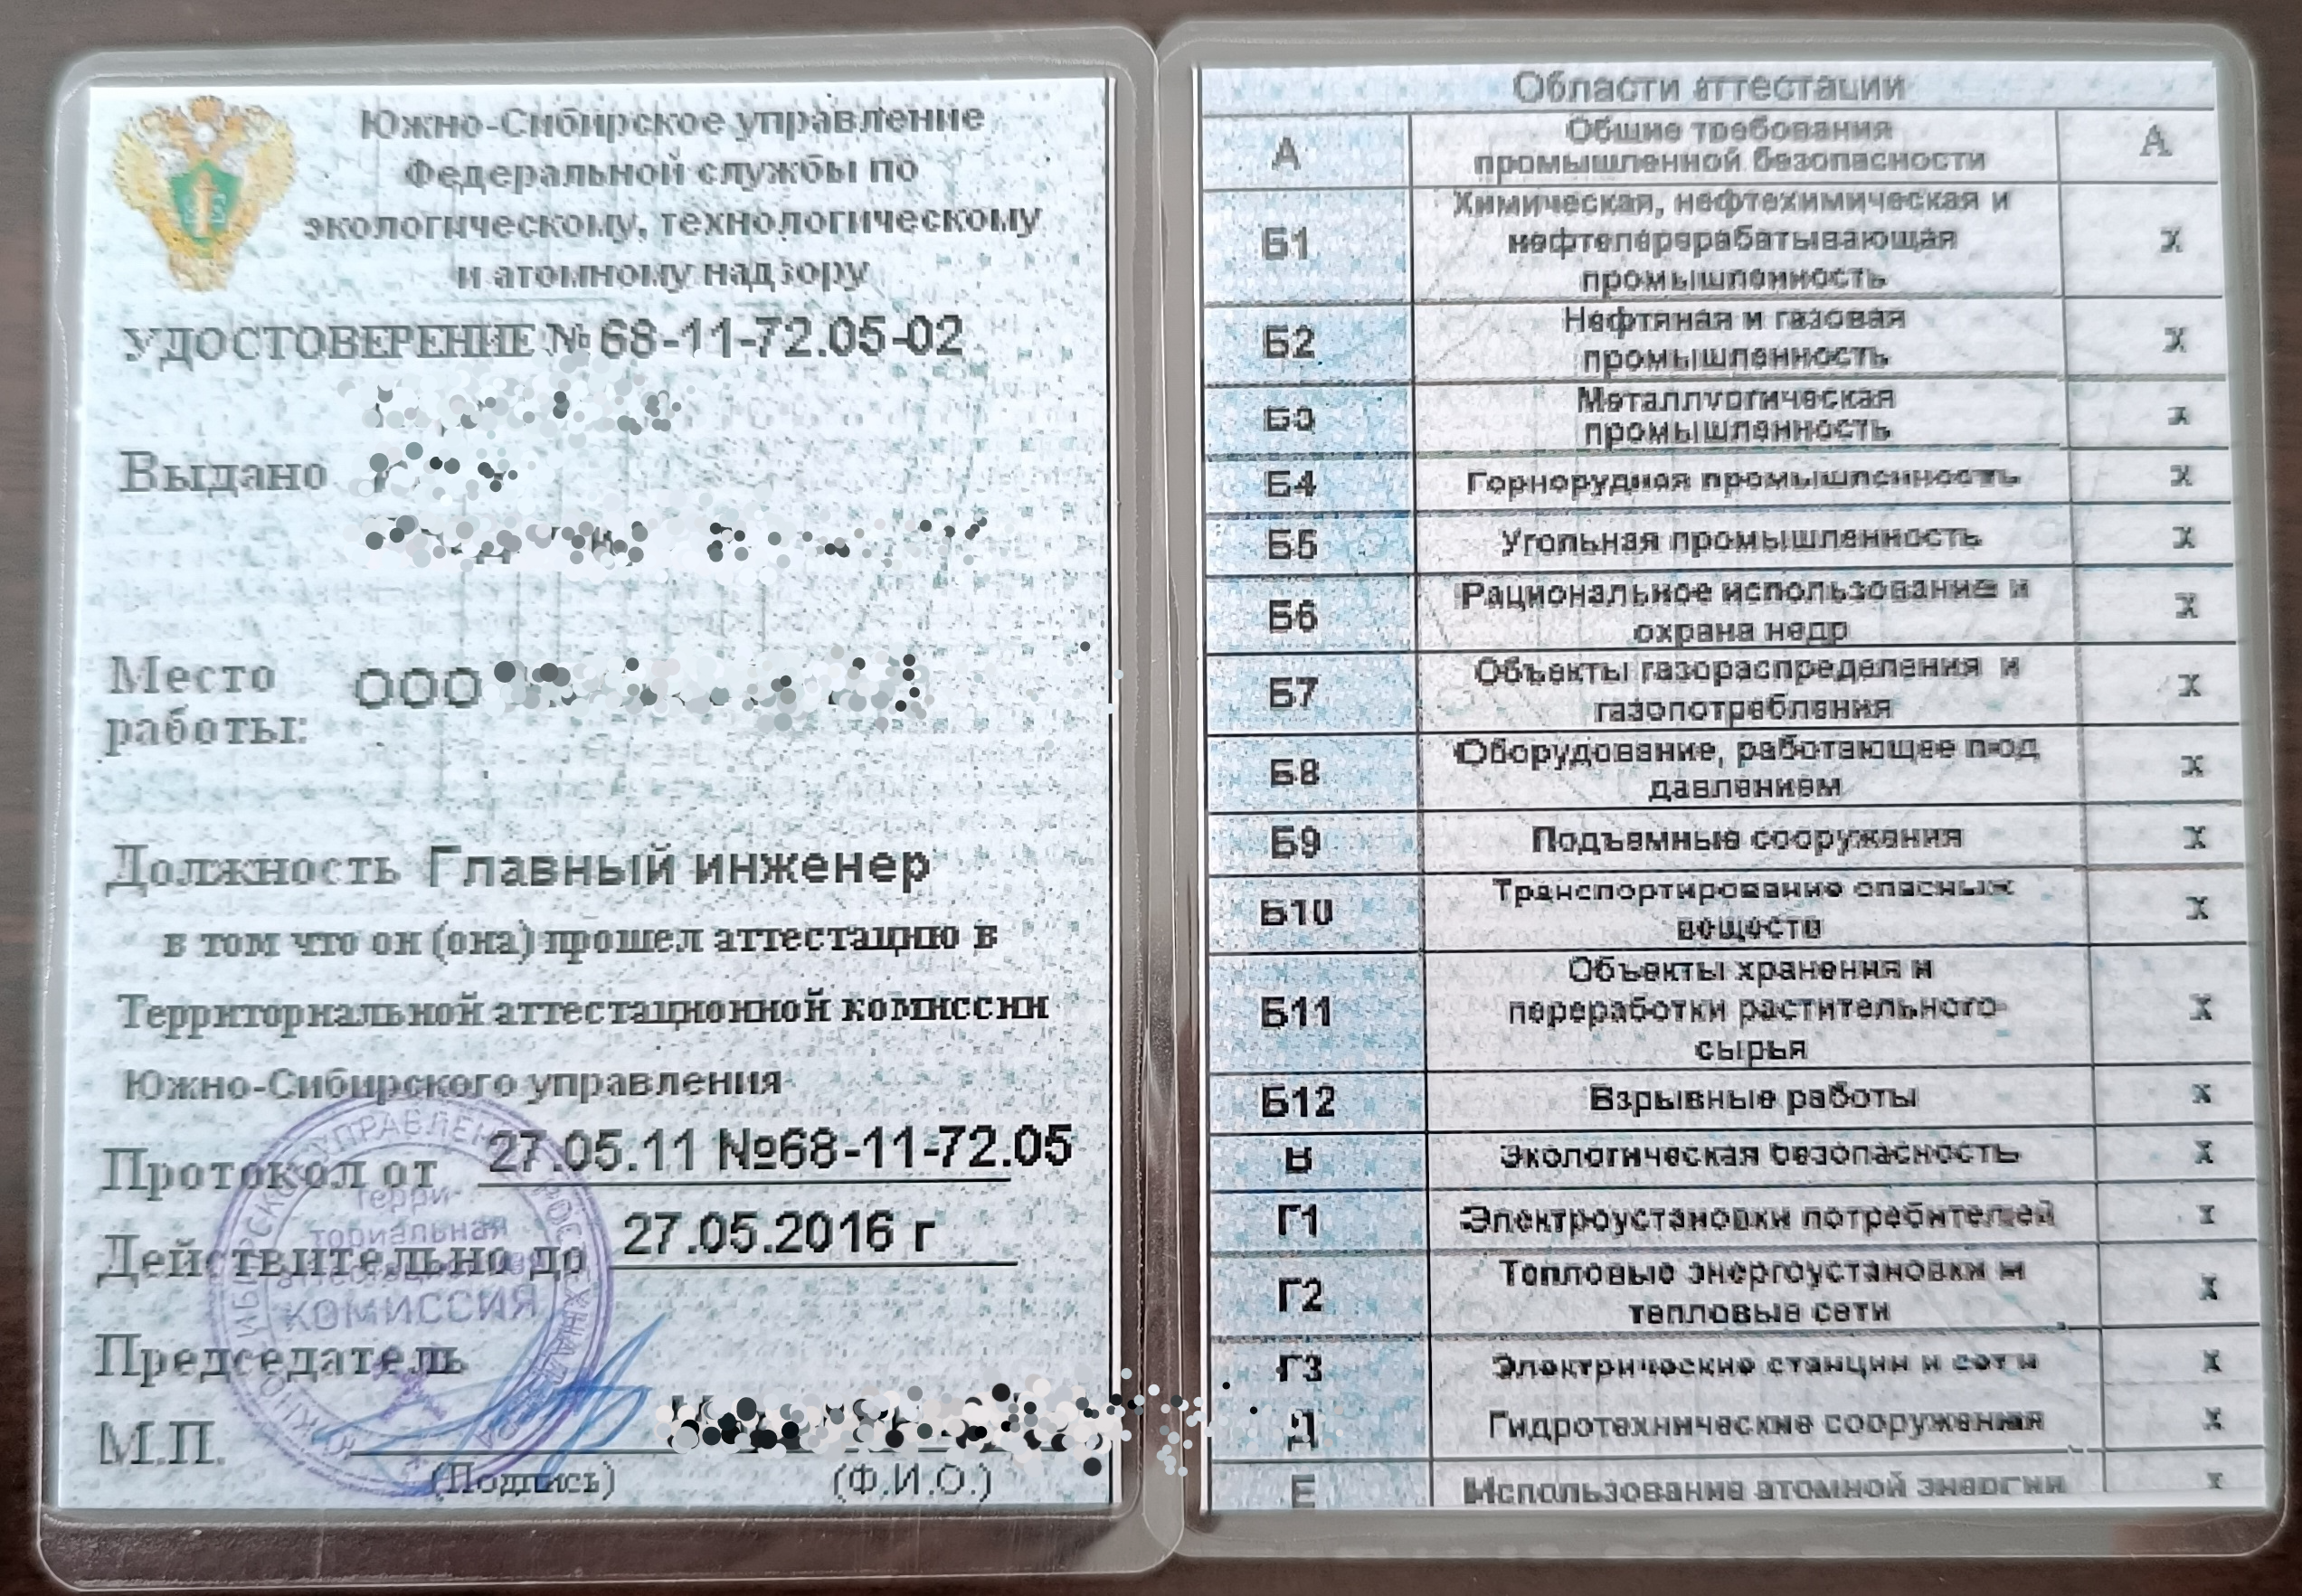 Южно-Сибирское управление
Федеральной службы по
экологическому, технологическому
и атомному надзору
УДОСТОВЕРЕНИЕ № 68-11-72.05-02
Выдано
Место
работы:
ООО
Должность Главный инженер
в том что он (она) прошел аттестацию в
Территориальной аттестационной комиссии
Южно-Сибирского управления
Протокол от 27.05.11 №68-11-72.05
Действительно до 27.05.2016 г
Председатель
М.П.
(Подпись) (Ф.И.О.)
терри-
ториальная
КОМИССИЯ
Области аттестации
А Общие требования
промышленной безопасности А
Б1 Химическая, нефтехимическая и
нефтеперерабатывающая
промышленность х
Б2 Нефтяная и газовая
промышленность х
Б3 Металлургическая
промышленность х
Б4 Горнорудная промышленность х
Б5 Угольная промышленность х
Б6 Рациональное использование и
охрана недр х
Б7 Объекты газораспределения и
газопотребления х
Б8 Оборудование, работающее под
давлением х
Б9 Подъемные сооружения х
Б10 Транспортирование опасных
веществ х
Б11 Объекты хранения и
переработки растительного
сырья х
Б12 Взрывные работы х
В Экологическая безопасность х
Г1 Электроустановки потребителей х
Г2 Тепловые энергоустановки и
тепловые сети х
Г3 Электрические станции и сети х
Д Гидротехнические сооружения х
Е Использование атомной энергии х